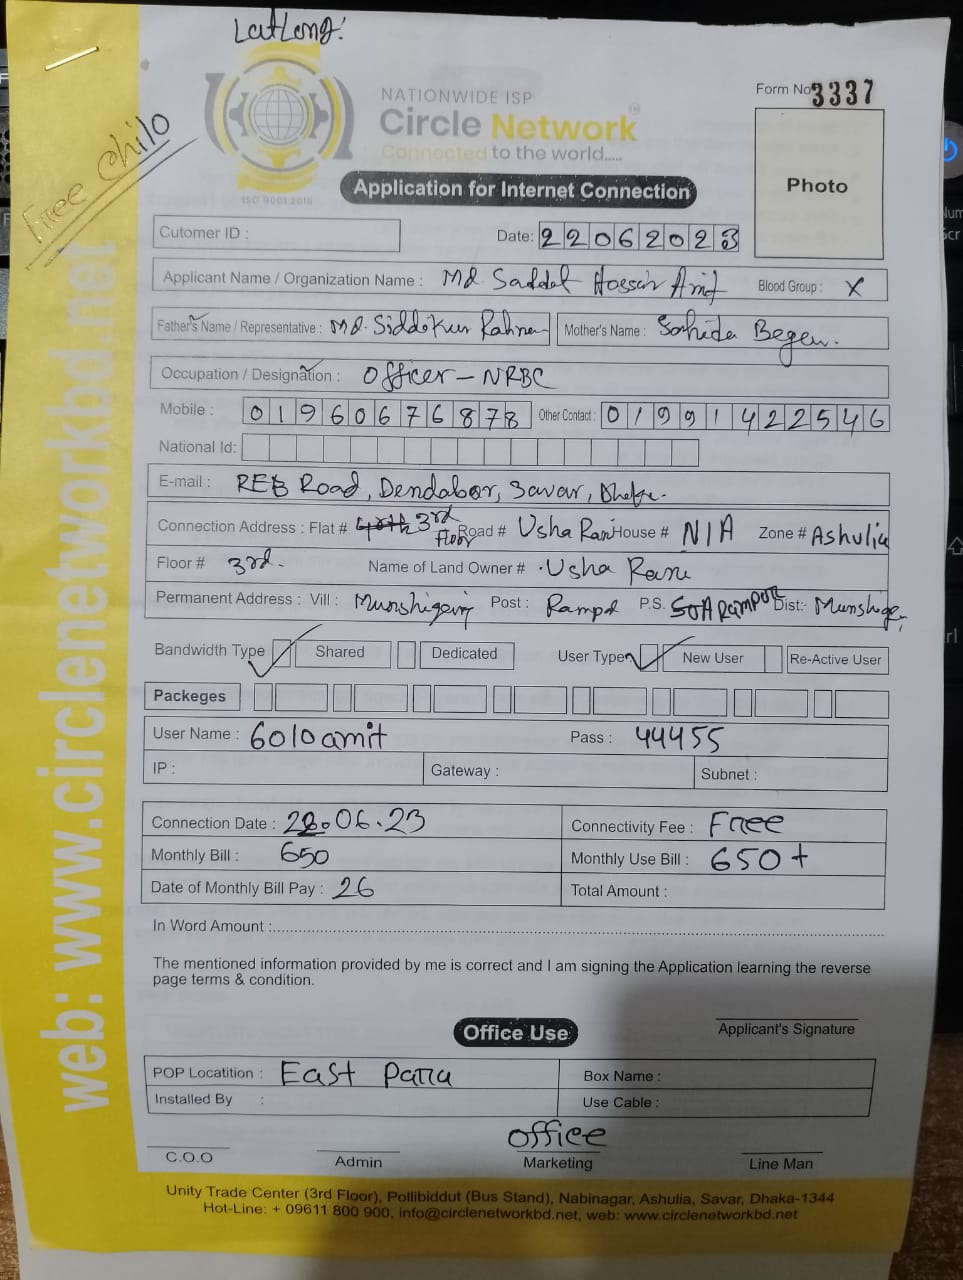 LatLong:
Free chilo
NATIONWIDE ISP
Circle Network
Connected to the world.....
ISO 9001:2015
Form No 3337
Photo
Application for Internet Connection
Cutomer ID :
Date: 22062023
Applicant Name / Organization Name : Md. Saddat Hossain Amit Blood Group : X
Father's Name / Representative : Md. Siddikur Rahman Mother's Name : Sahida Begum.
Occupation / Designation : Officer - NRBC
Mobile : 01960676878 Other Contact : 01991422546
National Id:
E-mail : REB Road, Dendabor, Savar, Dhaka.
Connection Address : Flat # 3rd floor Road # Usha Rani House # N/A Zone # Ashulia
Floor # 3rd. Name of Land Owner # Usha Rani
Permanent Address : Vill : Munshiganj Post : Rampal P.S. Dist:- Munshigan
Bandwidth Type Shared Dedicated User Type New User Re-Active User
Packeges
User Name : 6010amit Pass : 44455
IP : Gateway : Subnet :
Connection Date : 22.06.23 Connectivity Fee : Free
Monthly Bill : 650 Monthly Use Bill : 650+
Date of Monthly Bill Pay : 26 Total Amount :
In Word Amount :
The mentioned information provided by me is correct and I am signing the Application learning the reverse
page terms & condition.
Applicant's Signature
Office Use
POP Locatition : East Parra Box Name :
Installed By : Use Cable :
office
C.O.O Admin Marketing Line Man
Unity Trade Center (3rd Floor), Pollibiddut (Bus Stand), Nabinagar, Ashulia, Savar, Dhaka-1344
Hot-Line: + 09611 800 900, info@circlenetworkbd.net, web: www.circlenetworkbd.net
web: www.circlenetworkbd.net